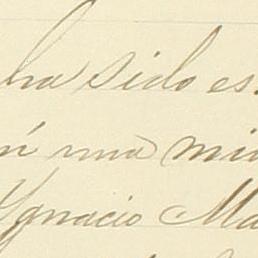 ha sido es
n una mi
Ygnacio Ma